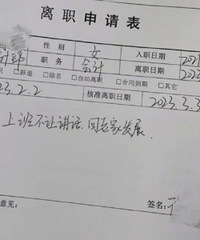 离 职 申 请 表
性 别 女 入职日期 201
计部 职 务 会计 离职日期 202
□辞退 □除名 □自动离职 □合同到期 □其它
23.2.2 核准离职日期 2023.3.3
上班不让讲话,回老家发展.
意见: 签名: